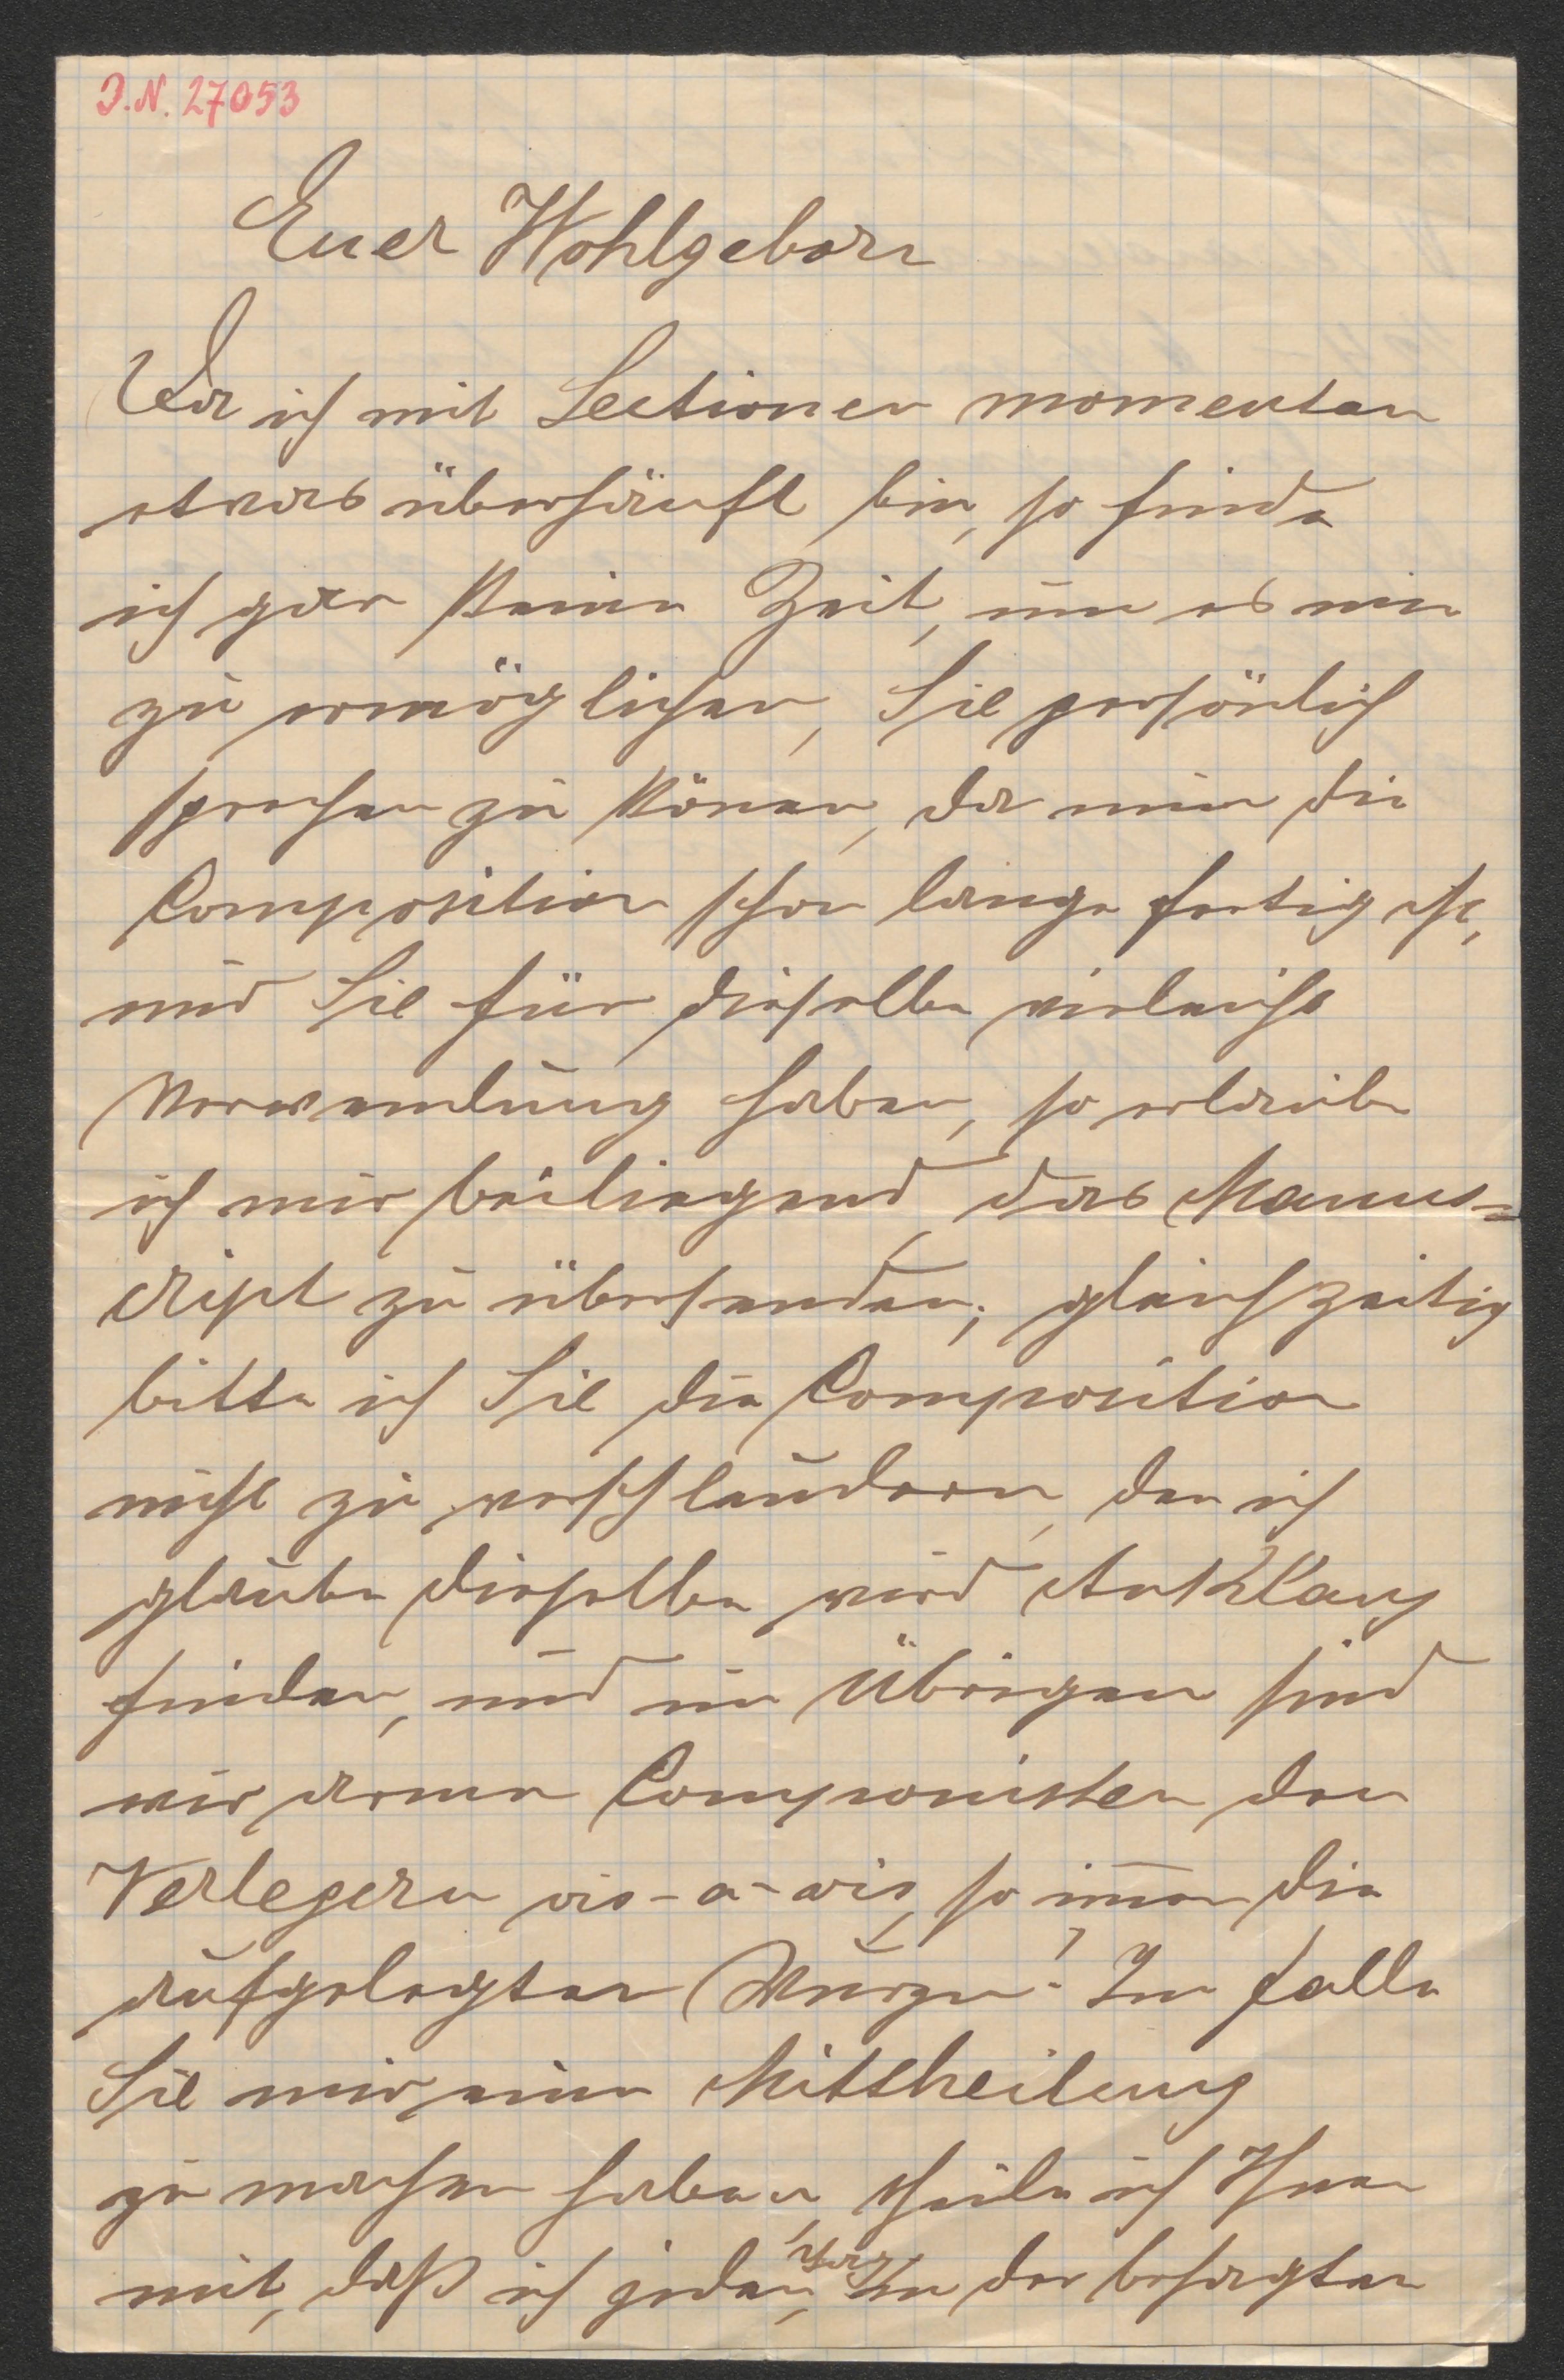 J.N. 27053
Euer Wohlgeborn
Da ich mit Lectionen momentan
etwas überhäuft bin, so finde
ich gar keine Zeit, um es mir
zu ermöglichen, Sie persönlich
sprechen zu könen, da nun die
Composition schon lange fertig ist,
und Sie für dieselbe vieleicht
Verwendung haben, so erlaube
ich mir beiliegend das Manus=
cript zu übersenden; gleichzeitig
bitte ich Sie die Composition
nicht zu verschleudern, den ich
glaube dieselbe wird Anklang
finden, und im Übrigen sind
wir arme Componisten den
Verlegern vis-a-vis, so imer die
aufgelegten Wurzn! Im falle
Sie mir eine Mittheilung
zu machen haben, theile ich Ihnen
mit, daß ich jeden Tag in der besagten